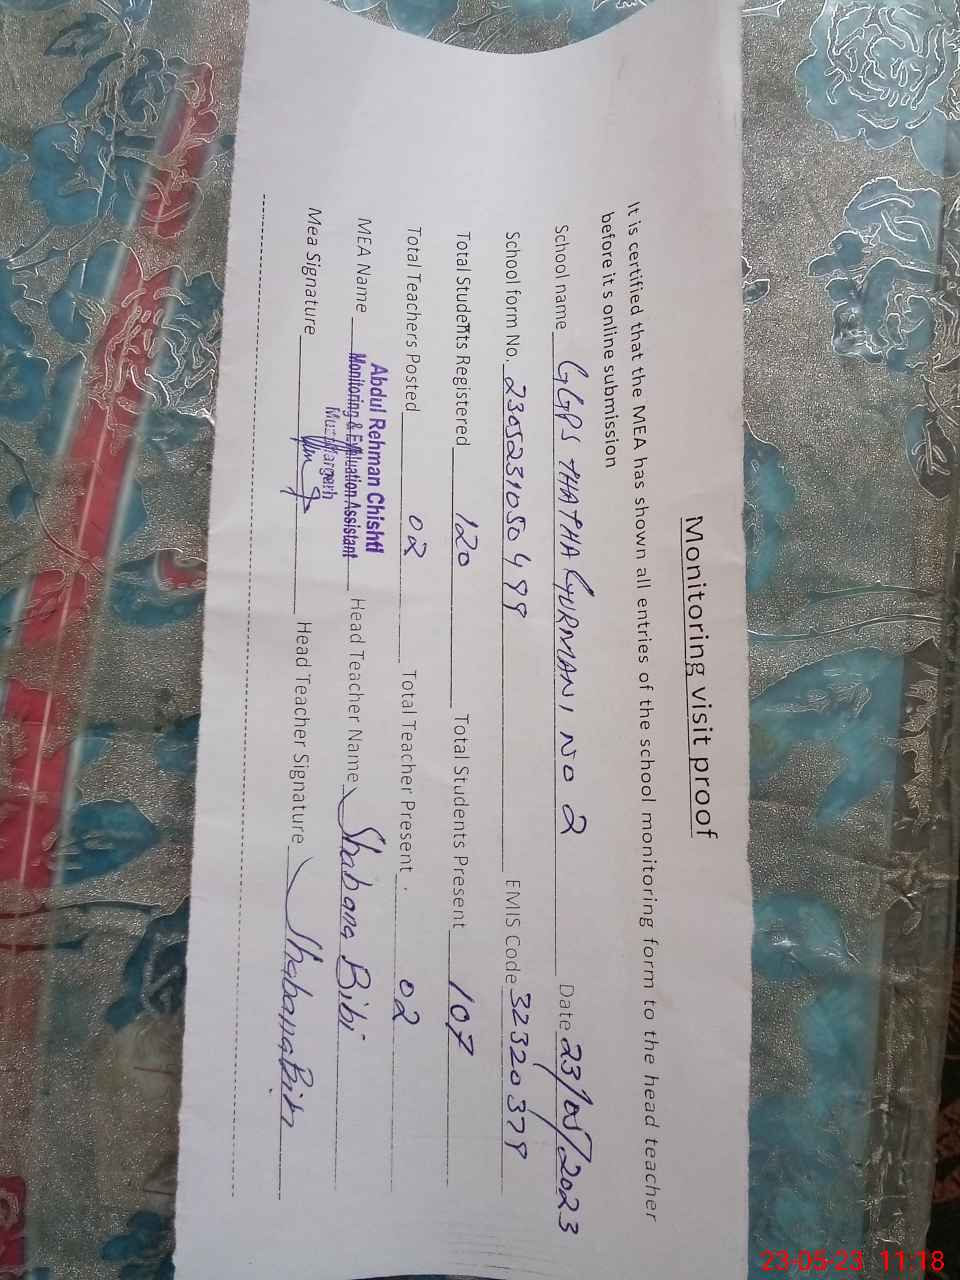 Monitoring visit proof
It is certified that the MEA has shown all entries of the school monitoring form to the head teacher
before it s online submission
School name GGPS THATHA GURMANI NO 2 Date 23/05/2023
School form No. 2305231050499 EMIS Code 32320379
Total Students Registered 120 Total Students Present 107
Total Teachers Posted 02 Total Teacher Present 02
MEA Name Abdul Rehman Chishti Head Teacher Name Shabana Bibi
Monitoring & Evaluation Assistant
Muzaffargarh
Mea Signature Head Teacher Signature Shabana Bibi
23-05-23 11:18